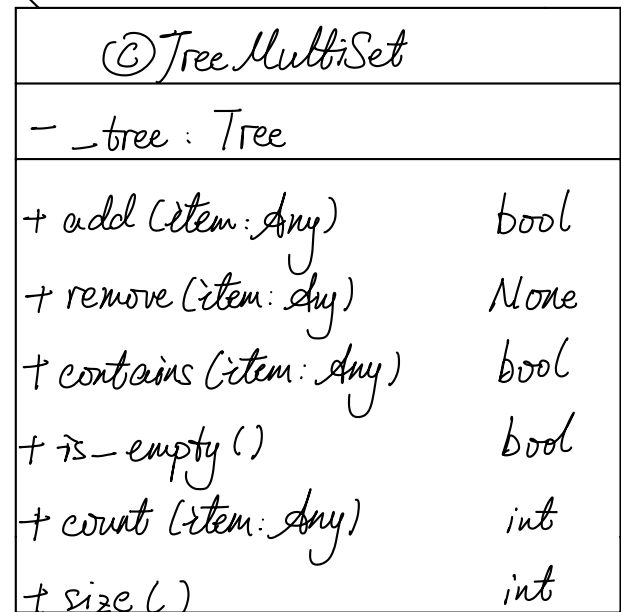 ©TreeMultiSet
- _tree : Tree
+ add (item: Any) bool
+ remove (item: Any) None
+ contains (item: Any) bool
+ is_empty () bool
+ count (item: Any) int
+ size () int